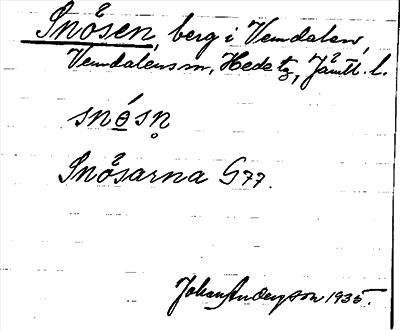 Snåsen, berg i Vemdalen,
Vemdalens sn, Hede tg, Jämtl. l.
snɵ́sn̥
Snåsarna G77.
Johan Anderson 1935.